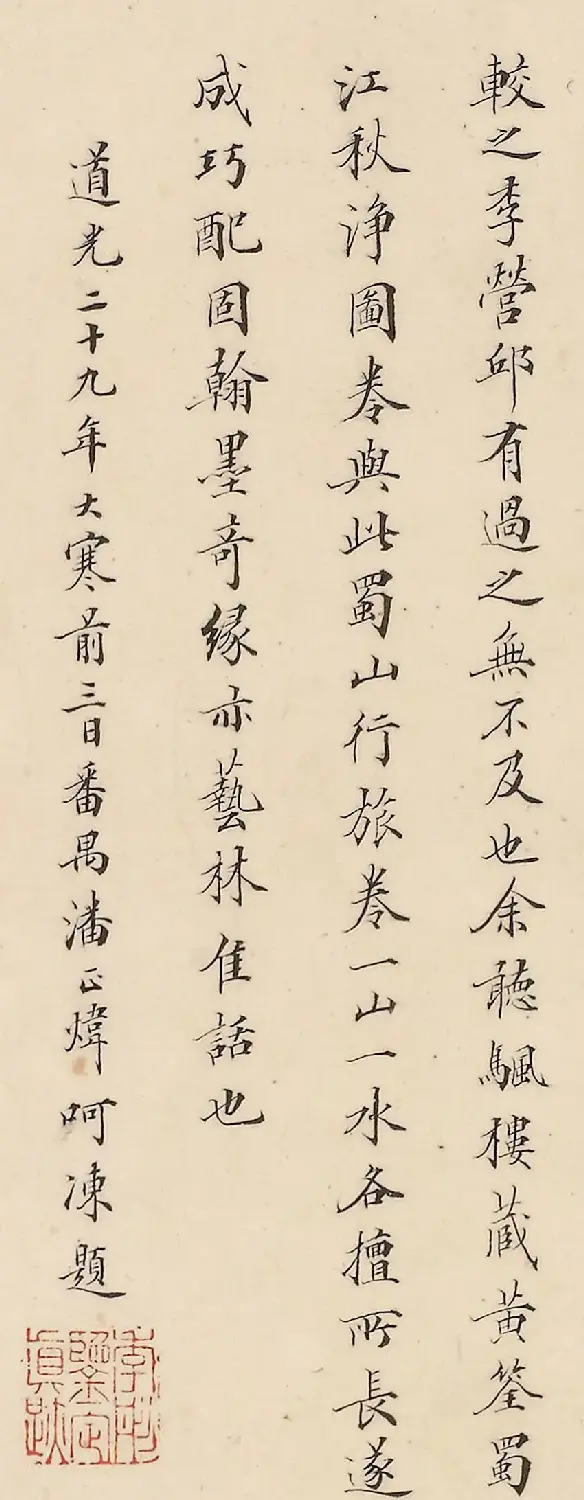 較之李營邱有過之無不及也余聽颿樓蔵黃筌蜀
江秋浄圖卷與此蜀山行旅卷一山一水各擅所長遂
成巧配固翰墨奇緣亦藝林佳話也
道光二十九年大寒前三日番禺潘正煒呵凍題
季彤鑒定真跡